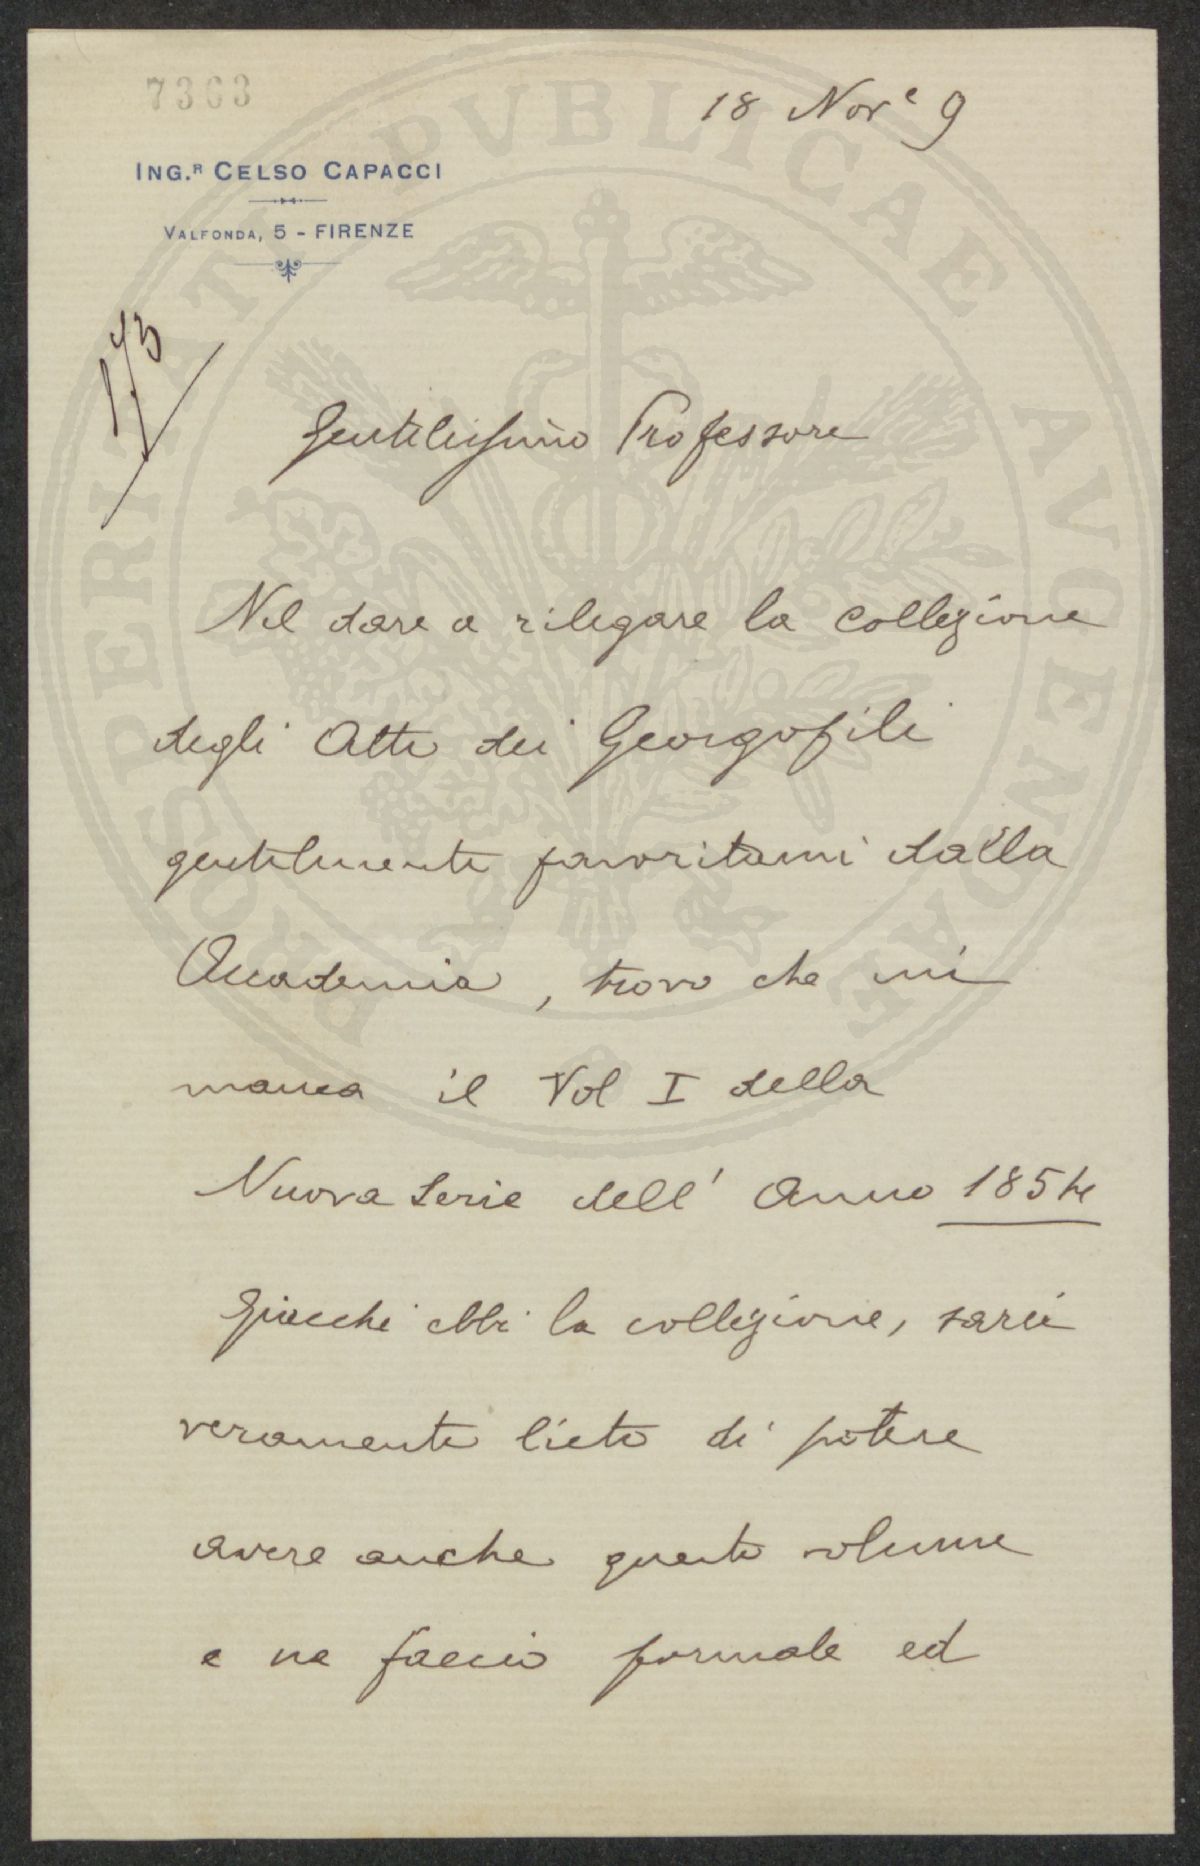 7363
18 Nov.e 9
ING.R CELSO CAPACCI
VALFONDA, 5 - FIRENZE
173
PROSPERITATI PVBLICAE AVGENDAE
Gentilissimo Professore
Nel dare a rilegare la collezione
degli Atti dei Georgofili
gentilmente favoritami dalla
Accademia, trovo che mi
manca il Vol I della
Nuova Serie dell' Anno 1854
Giacchè ebbi la collezione, sarei
veramente lieto di potere
avere anche questo volume
e ne faccio formale ed